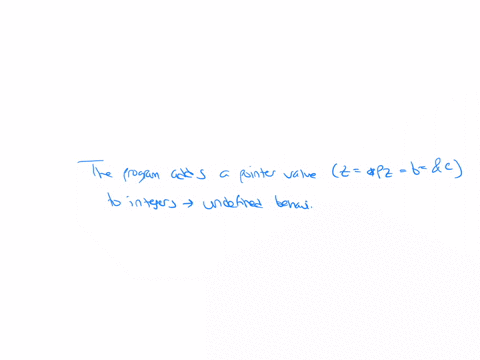 The program adds a pointer value (z = *pz = b = &c)
to integers → undefined behavi.